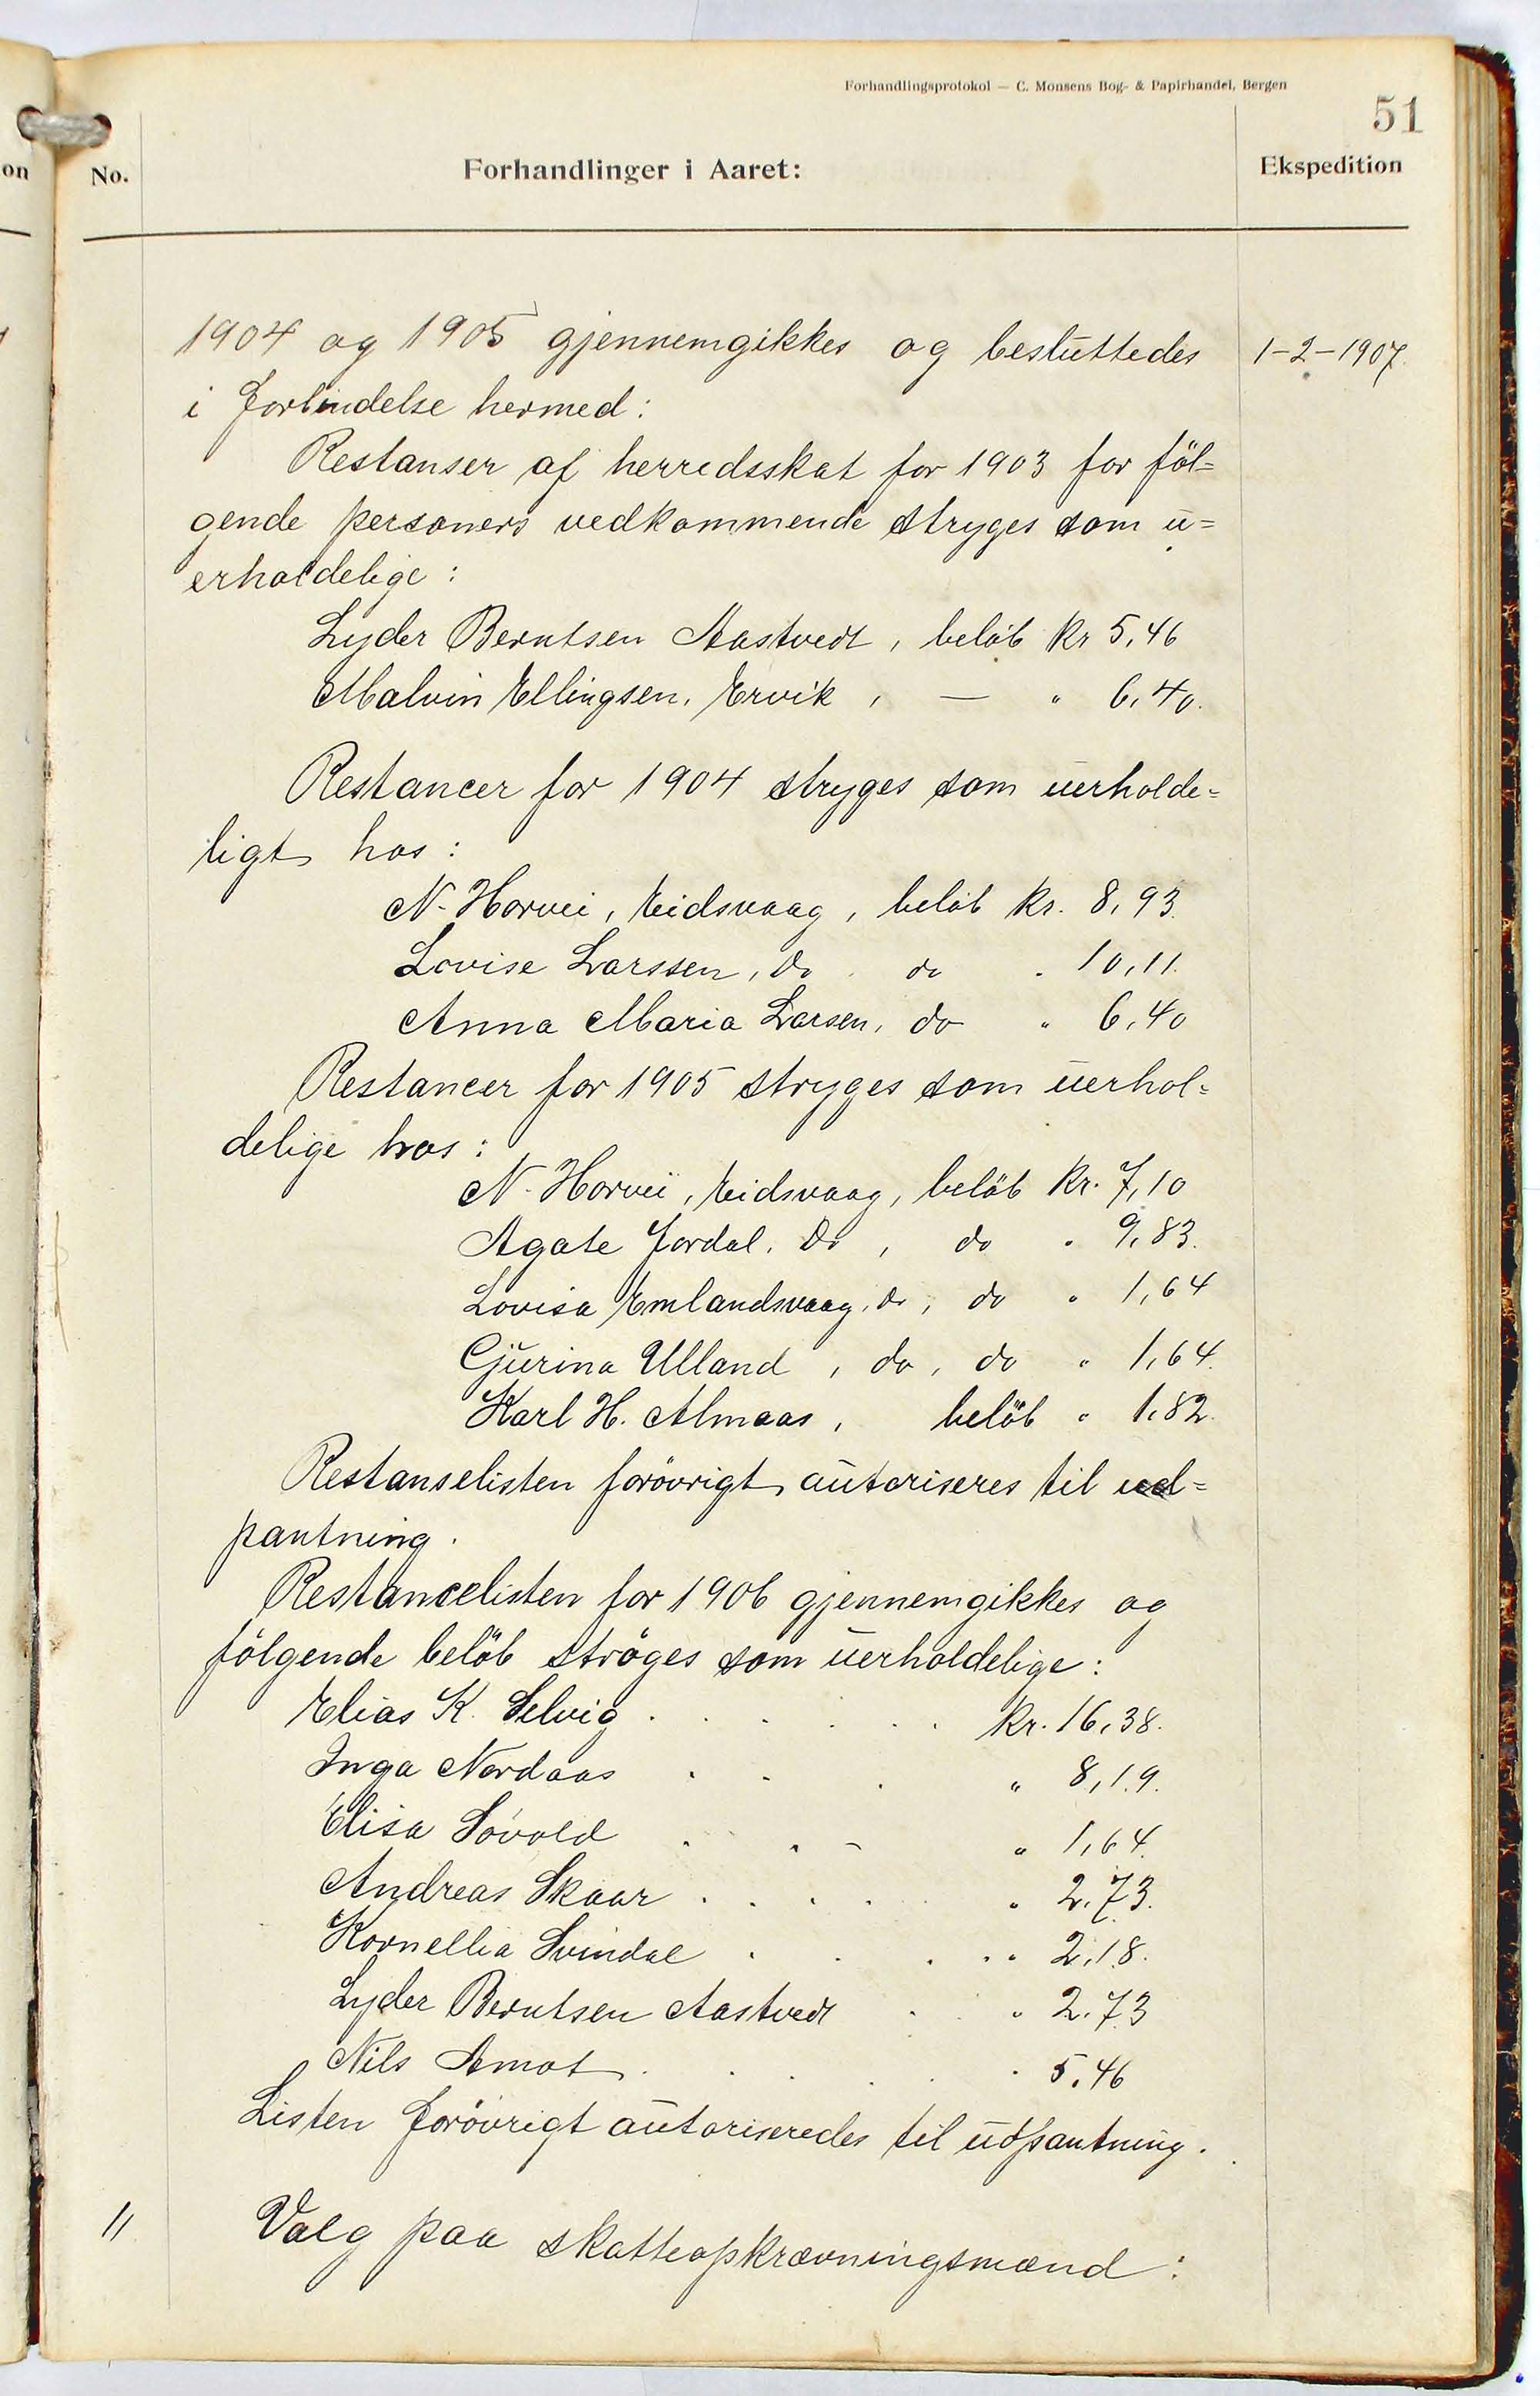 Forhandlingsprotokol — C. Monsens Bog- & Papirhandel, Bergen
51
on
No.
Forhandlinger i Aaret:
Ekspedition
1904 og 1905 gjennemgikkes og besluttedes 1-2-1907.
i forbindelse hermed:
Restanser af herredsskat for 1903 for föl=
gende personers vedkommende stryges som u=
erholdelige:
Lyder Berntsen Aastvedt, belöb Kr 5,46
Malvin Ellingsen, Ervik, — " 6,40.
Restancer for 1904 stryges som uerholde=
ligt hos:
N. Horvei, Eidsvaag, belöb Kr. 8,93.
Lovise Larssen, do do " 10,11.
Anna Maria Larsen, do " 6,40
Restancer for 1905 stryges som uerhol=
delige hos:
N. Horvei, Eidsvaag, belöb Kr. 7,10
Agate Jordal, do, do " 9,83.
Lovisa Emlandsvaag, do, do " 1,64
Gjurina Ulland, do, do " 1,64.
Karl H. Almaas, belöb " 1,82.
Restanselisten forövrigt autoriseres til ud=
pantning.
Restancelisten for 1906 gjennemgikkes og
fölgende belöb ströges som uerholdelige:
Elias K. Selvig . . . . . . Kr. 16,38.
Inga Nordaas . . . " 8,19.
Elisa Sövold . . . " 1,64.
Andreas Skaar . . . . " 2,73.
Kornellia Svindal . . . . " 2,18.
Lyder Berntsen Aastvedt . . " 2,73
Nils Amot . . . . . . 5,46
Listen forövrigt autoriseredes til udpantning.
11 Valg paa skatteopkrævningsmænd: